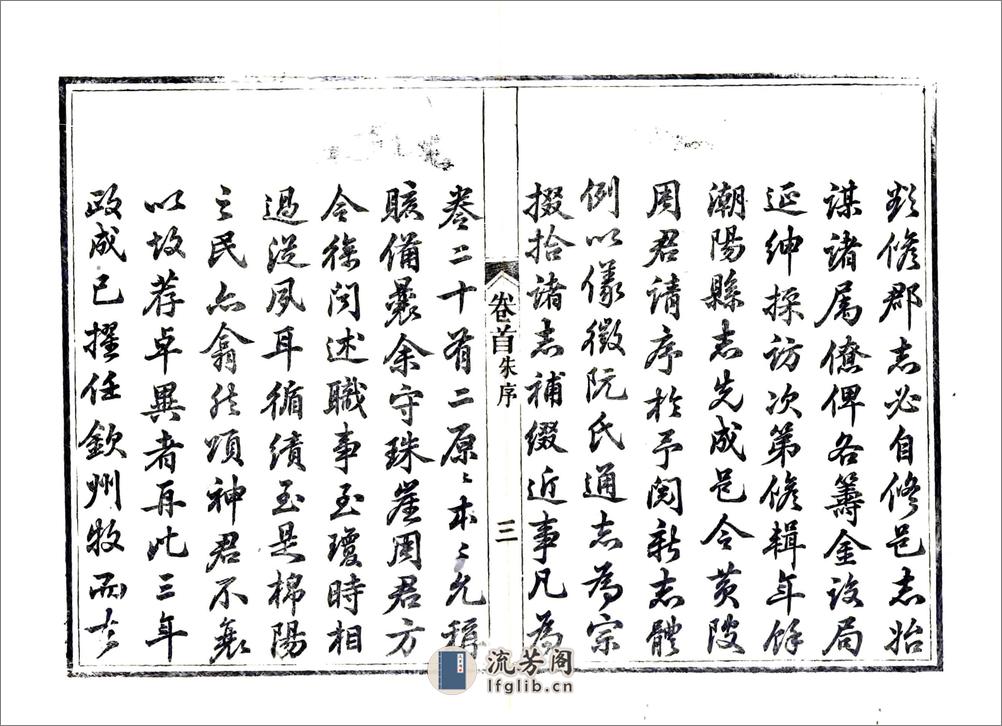 欵修郡志必自修邑志始
謀諸属僚俾各籌金設局
延紳採访次第修輯年餘
潮陽縣志先成邑令黄陂
周君请序於予閱新志體
例以儀徵阮氏通志為宗
掇拾諸志補缀近事凡為
卷首朱序
三
卷二十有二原〻本〻允稱
賅備曩余守珠崖周君方
令徐闻述職事至瓊時相
過從夙耳循績至是棉陽
之民亦翕然頌神君不衰
以故荐卓異者再此三年
政成已擢任欽州牧而去
流芳阁
lfglib.cn